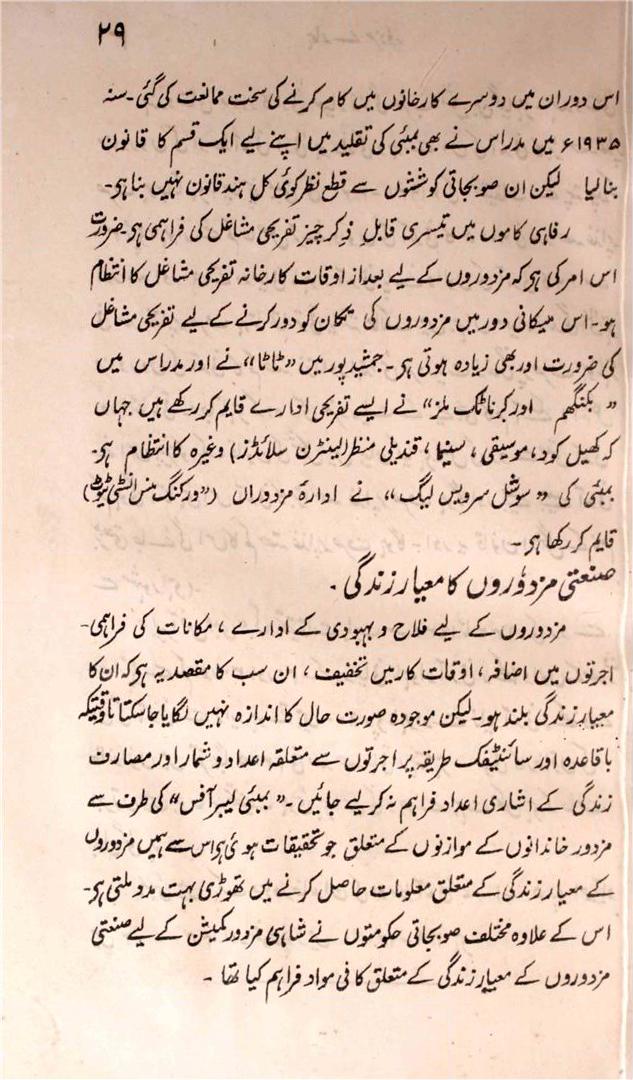 ۲۹
اس دوران میں دوسرے کارخانوں میں کام کرنے کی سخت ممانعت کی گئی۔ سنہ
۱۹۳۵ء میں مدراس نے بھی بمبئی کی تقلید میں اپنے لیے ایک قسم کا قانون
بنالیا لیکن ان صوبجاتی کوششوں سے قطع نظر کوئی کل ہند قانون نہیں بنا ہی۔
رفاہی کاموں میں تیسری قابلِ ذکر چیز تفریحی مشاغل کی فراہمی ہی۔ ضرورت
اس امر کی ہی کہ مزدوروں کے لیے بعد از اوقات کارخانہ تفریحی مشاغل کا انتظام
ہو۔ اس میکانی دور میں مزدوروں کی تکان کو دور کرنے کے لیے تفریحی مشاغل
کی ضرورت اور بھی زیادہ ہوتی ہی۔ جمشید پور میں “ٹاٹا” نے اور مدراس میں
“بکنگھم اور کرناٹک ملز” نے ایسے تفریحی ادارے قایم کر رکھے ہیں جہاں
کہ کھیل کود، موسیقی، سنیما، قندیلی منظر (لینٹرن سلائڈز) وغیرہ کا انتظام ہی۔
بمبئی کی “سوشل سرویس لیگ” نے ادارۂ مزدوراں (“ورکنگ منس انسٹی ٹیوٹ”)
قایم کر رکھا ہی۔
صنعتی مزدوروں کا معیارِ زندگی۔
مزدوروں کے لیے فلاح و بہبودی کے ادارے، مکانات کی فراہمی۔
اجرتوں میں اضافہ، اوقات کار میں تخفیف، ان سب کا مقصد یہ ہی کہ ان کا
معیارِ زندگی بلند ہو۔ لیکن موجودہ صورت حال کا اندازہ نہیں لگایا جا سکتا تاوقتیکہ
باقاعدہ اور سائنٹیفک طریقہ پر اجرتوں سے متعلقہ اعداد و شمار اور مصارف
زندگی کے اشاری اعداد فراہم نہ کر لیے جائیں۔ “بمبئی لیبر آفس” کی طرف سے
مزدور خاندانوں کے موازنوں کے متعلق جو تحقیقات ہوئی ہی اس سے ہمیں مزدوروں
کے معیارِ زندگی کے متعلق معلومات حاصل کرنے میں تھوڑی بہت مدد ملتی ہی۔
اس کے علاوہ مختلف صوبجاتی حکومتوں نے شاہی مزدور کمیشن کے لیے صنعتی
مزدوروں کے معیارِ زندگی کے متعلق کافی مواد فراہم کیا تھا۔